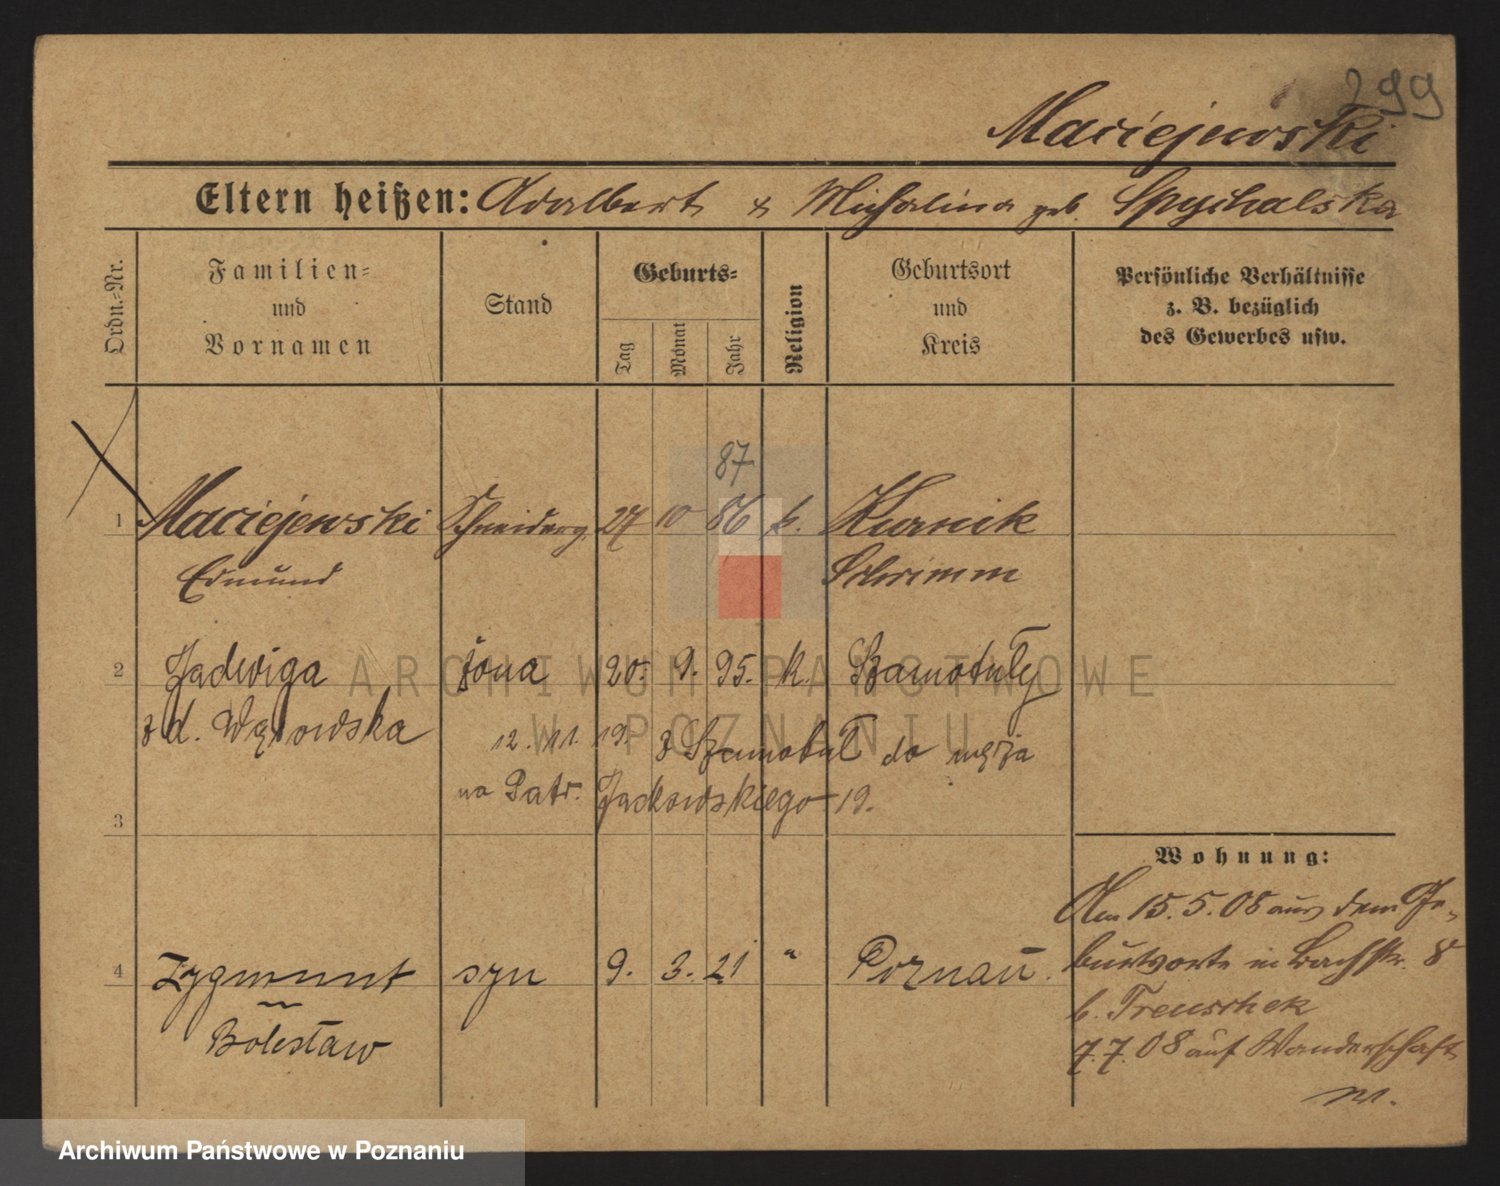 299
Maciejewski
Eltern heißen: Adalbert & Michalina geb. Spychalska
Ordn.=Nr.
Familien=
und
Vornamen
Stand
Geburts=
Tag
Monat
Jahr
Religion
Geburtsort
und
Kreis
Persönliche Verhältnisse
z. B. bezüglich
des Gewerbes usw.
87
1 Maciejewski Schneiderg 27 10 86 k. Kurnik
Edmund Schrimm
2 Jadwiga żona 20. 9. 95. k. Szamotuły
z d. Wąsowska
12. 11. 19. z Szamotuł do męża
na Patr. Jackowskiego 19.
3
Wohnung:
Am 15.5.08 aus dem Ge-
burtsorte in Bachstr. 8
b. Treuschek
7.7.08 auf Wanderschaft
4 Zygmunt syn 9. 3. 21 " Poznań.
Bolesław
ARCHIWUM PAŃSTWOWE
W POZNANIU
Archiwum Państwowe w Poznaniu